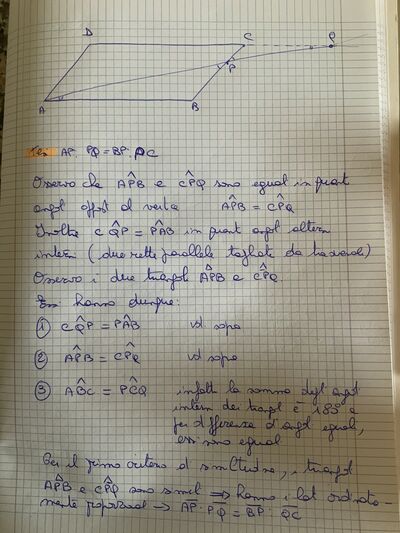 D C Q
P
A B
Tesi AP : PQ = BP : PC
Osservo che AP̂B e CP̂Q sono eguali in quant
angoli opposti al vertice AP̂B = CP̂Q
Inoltre CQ̂P = PÂB in quant angoli alterni
interni (due rette parallele tagliate da trasversale)
Osservo i due triangoli AP̂B e CP̂Q
Essi hanno dunque:
① CQ̂P = PÂB vd sopra
② AP̂B = CP̂Q vd sopra
③ AB̂C = PĈQ infatti la somma degli angoli
interni dei triangoli è 180° e
per differenza d'angoli eguali,
essi sono eguali
Per il primo criterio di similitudine, i triangoli
AP̂B e CP̂Q sono simili ⟹ hanno i lati ordinata-
mente proporzionali → AP : PQ = BP : QC